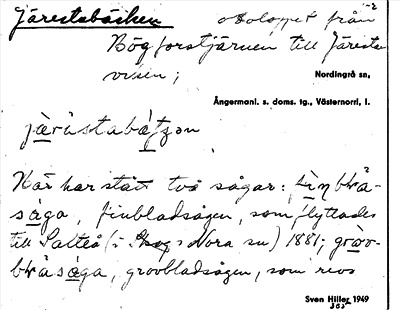 Järestabäcken avloppet från
Bögforstjärnen till Järesta-
viken;
Nordingrå sn,
Ångermanl. s. doms. tg., Västernorrl, l.
järistabätjən
Här har stått två sågar: finblså-
såga, finbladsågen, som flyttades
till Salteå (i Skogs Nora sn) 1881; grov-
blåsåga, grovbladsågen, som revs
Sven Hiller 1949